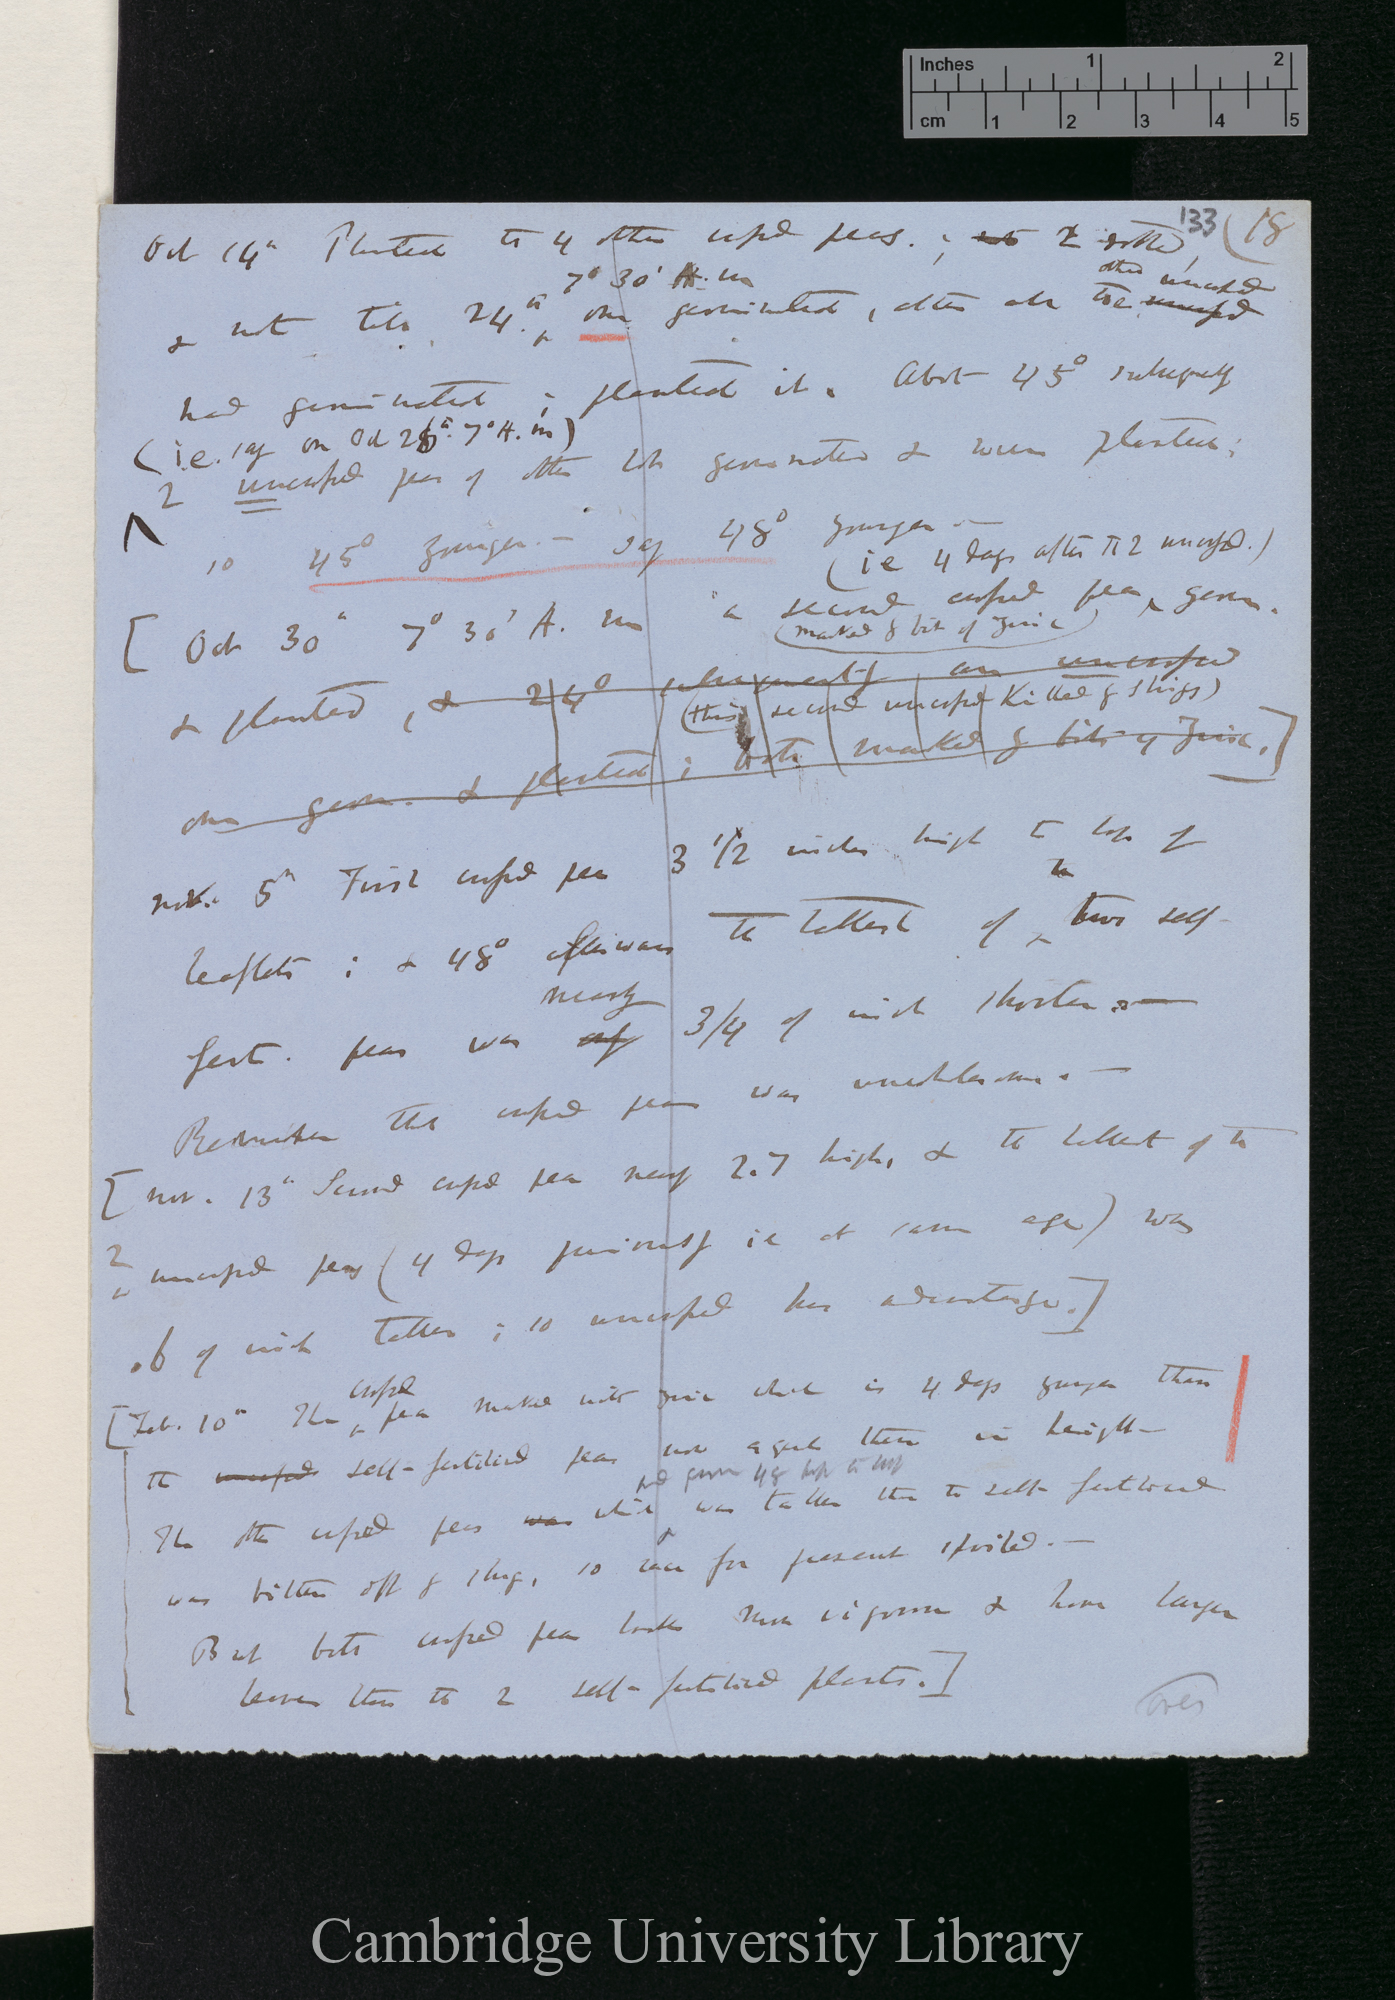 Inches 1 2
cm 1 2 3 4 5
133 (18
Oct 14th Planted the 4 other crossed peas. ; 2 rotted,
7° 30' A. m other uncrossed
& not till 24.th one germinated, after all the uncrossed
had germinated ; planted it. About 45° subsequently
(i.e. say on Oct 26th. 7° A. m)
2 uncrossed peas of other lot germinated & were planted;
so 45° younger. — say 48° younger —
(ie 4 days after the 2 uncrossed.)
[Oct 30th 7° 30' A. m a second crossed pea germ.
(marked by bit of zinc)
& planted, & 24° subsequently an uncrossed
(this second uncrossed killed by slugs)
one germ. & planted ; both marked by bits of zinc.]
Nov. 5th First crossed pea 3 1/2 inches high to top of
the
leaflets ; & 48° afterwards the tallest of two self-
nearly
fert. peas was 3/4 of inch shorter. —
Remember this crossed pea was unwholesome. —
[Nov. 13th Second crossed pea nearly 2.7 high, & the tallest of the
2 uncrossed peas (4 days previously ie at same age) was
.6 of inch taller ; so uncrossed has advantage.]
crossed
[Feb. 10th The pea marked with zinc which is 4 days younger than
the uncrossed self-fertilised peas now equals them in height —
The other crossed peas was which was taller than the self-fertilised
was bitten off by slug, so race for present spoiled. —
But both crossed peas look more vigorous & have larger
leaves than the 2 self-fertilised plants.]
over
Cambridge University Library